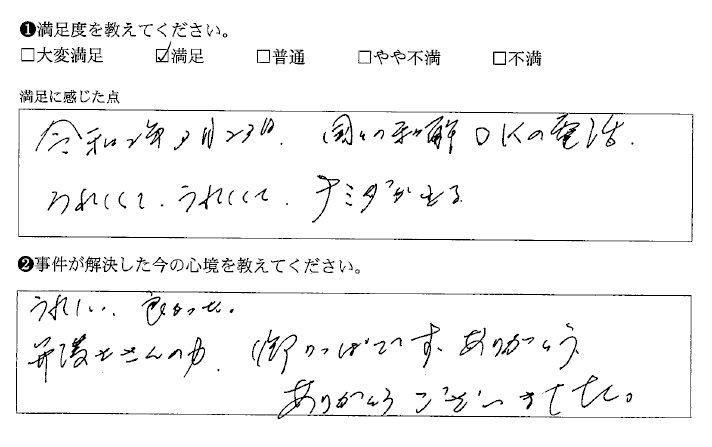 ❶満足度を教えてください。
□大変満足 ☑満足 □普通 □やや不満 □不満
満足に感じた点
令和2年3月23日、国との和解OKの電話、
うれしくて、うれしくて、ナミダが出る
❷事件が解決した今の心境を教えてください。
うれしい、良かった。
弁護士さんの力、御りっぱです、ありがとう
ありがとうございました。